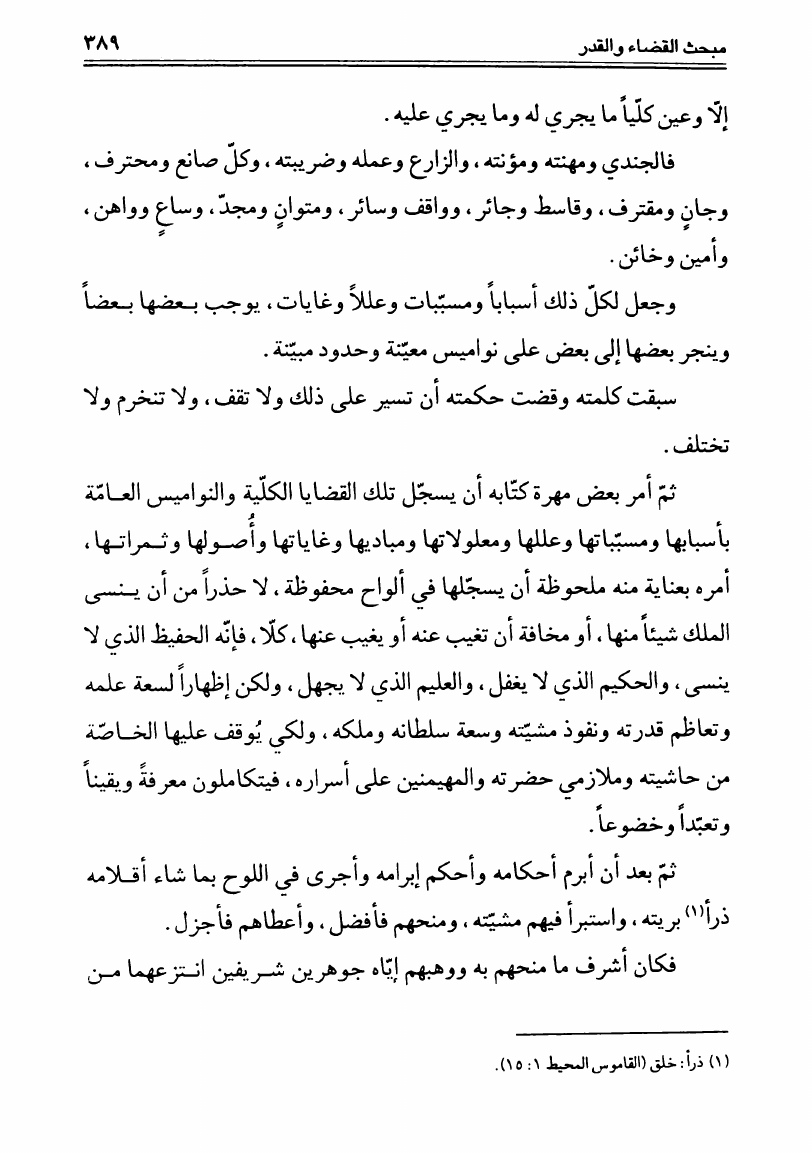 مبحث القضاء والقدر ٣٨٩
إلّا وعين كلّياً ما يجري له وما يجري عليه.
فالجندي ومهنته ومؤنته، والزارع وعمله وضريبته، وكلّ صانع ومحترف،
وجانٍ ومقترف، وقاسط وجائر، وواقف وسائر، ومتوانٍ ومجدّ، وساعٍ وواهن،
وأمين وخائن.
وجعل لكلّ ذلك أسباباً ومسبّبات وعللاً وغايات، يوجب بـعضها بـعضاً
وينجر بعضها إلى بعض على نواميس معيّنة وحدود مبيّنة.
سبقت كلمته وقضت حكمته أن تسير على ذلك ولا تقف، ولا تنخرم ولا
تختلف.
ثمّ أمر بعض مهرة كتّابه أن يسجّل تلك القضايا الكلّية والنواميس العـامّة
بأسبابها ومسبّباتها وعللها ومعلولاتها ومباديها وغاياتها وأُصـولها وثـمراتـها،
أمره بعناية منه ملحوظة أن يسجّلها في ألواح محفوظة، لا حذراً من أن يـنـسى
الملك شيئاً منها، أو مخافة أن تغيب عنه أو يغيب عنها، كلّا، فإنّه الحفيظ الذي لا
ينسى، والحكيم الذي لا يغفل، والعليم الذي لا يجهل، ولكن إظهاراً لسعة علمه
وتعاظم قدرته ونفوذ مشيّته وسعة سلطانه وملكه، ولكي يُوقف عليها الخـاصّة
من حاشيته وملازمي حضرته والمهيمنين على أسراره، فيتكاملون معرفةً ويقيناً
وتعبّداً وخضوعاً.
ثمّ بعد أن أبرم أحكامه وأحكم إبرامه وأجرى في اللوح بما شاء أقـلامه
ذرأ(١) بريته، واستبرأ فيهم مشيّته، ومنحهم فأفضل، وأعطاهم فأجزل.
فكان أشرف ما منحهم به ووهبهم إيّاه جوهرين شـريفين انـتزعهما مـن
(١) ذرأ: خلق (القاموس المحيط ١: ١٥).